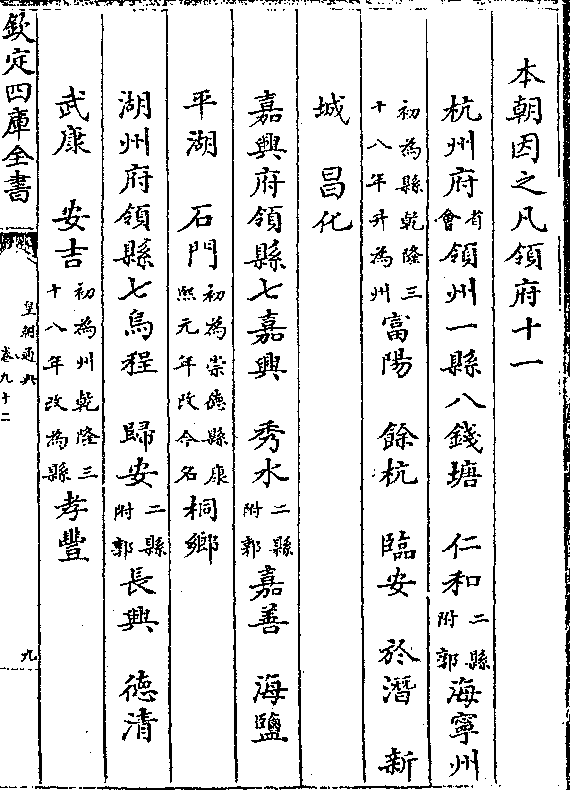 本朝因之凡領府十一
杭州府省會領州一縣八錢塘　仁和二縣附郭海寧州
初為縣乾隆三十八年升為州富陽　餘杭　臨安　於潛　新
城　昌化
嘉興府領縣七嘉興　秀水二縣附郭嘉善　海鹽
平湖　石門初為崇德縣康熙元年改今名桐鄉
湖州府領縣七烏程　歸安二縣附郭長興　德清
武康　安吉初為州乾隆三十八年改為縣孝豐
欽定四庫全書
皇朝通典
卷九十二
九